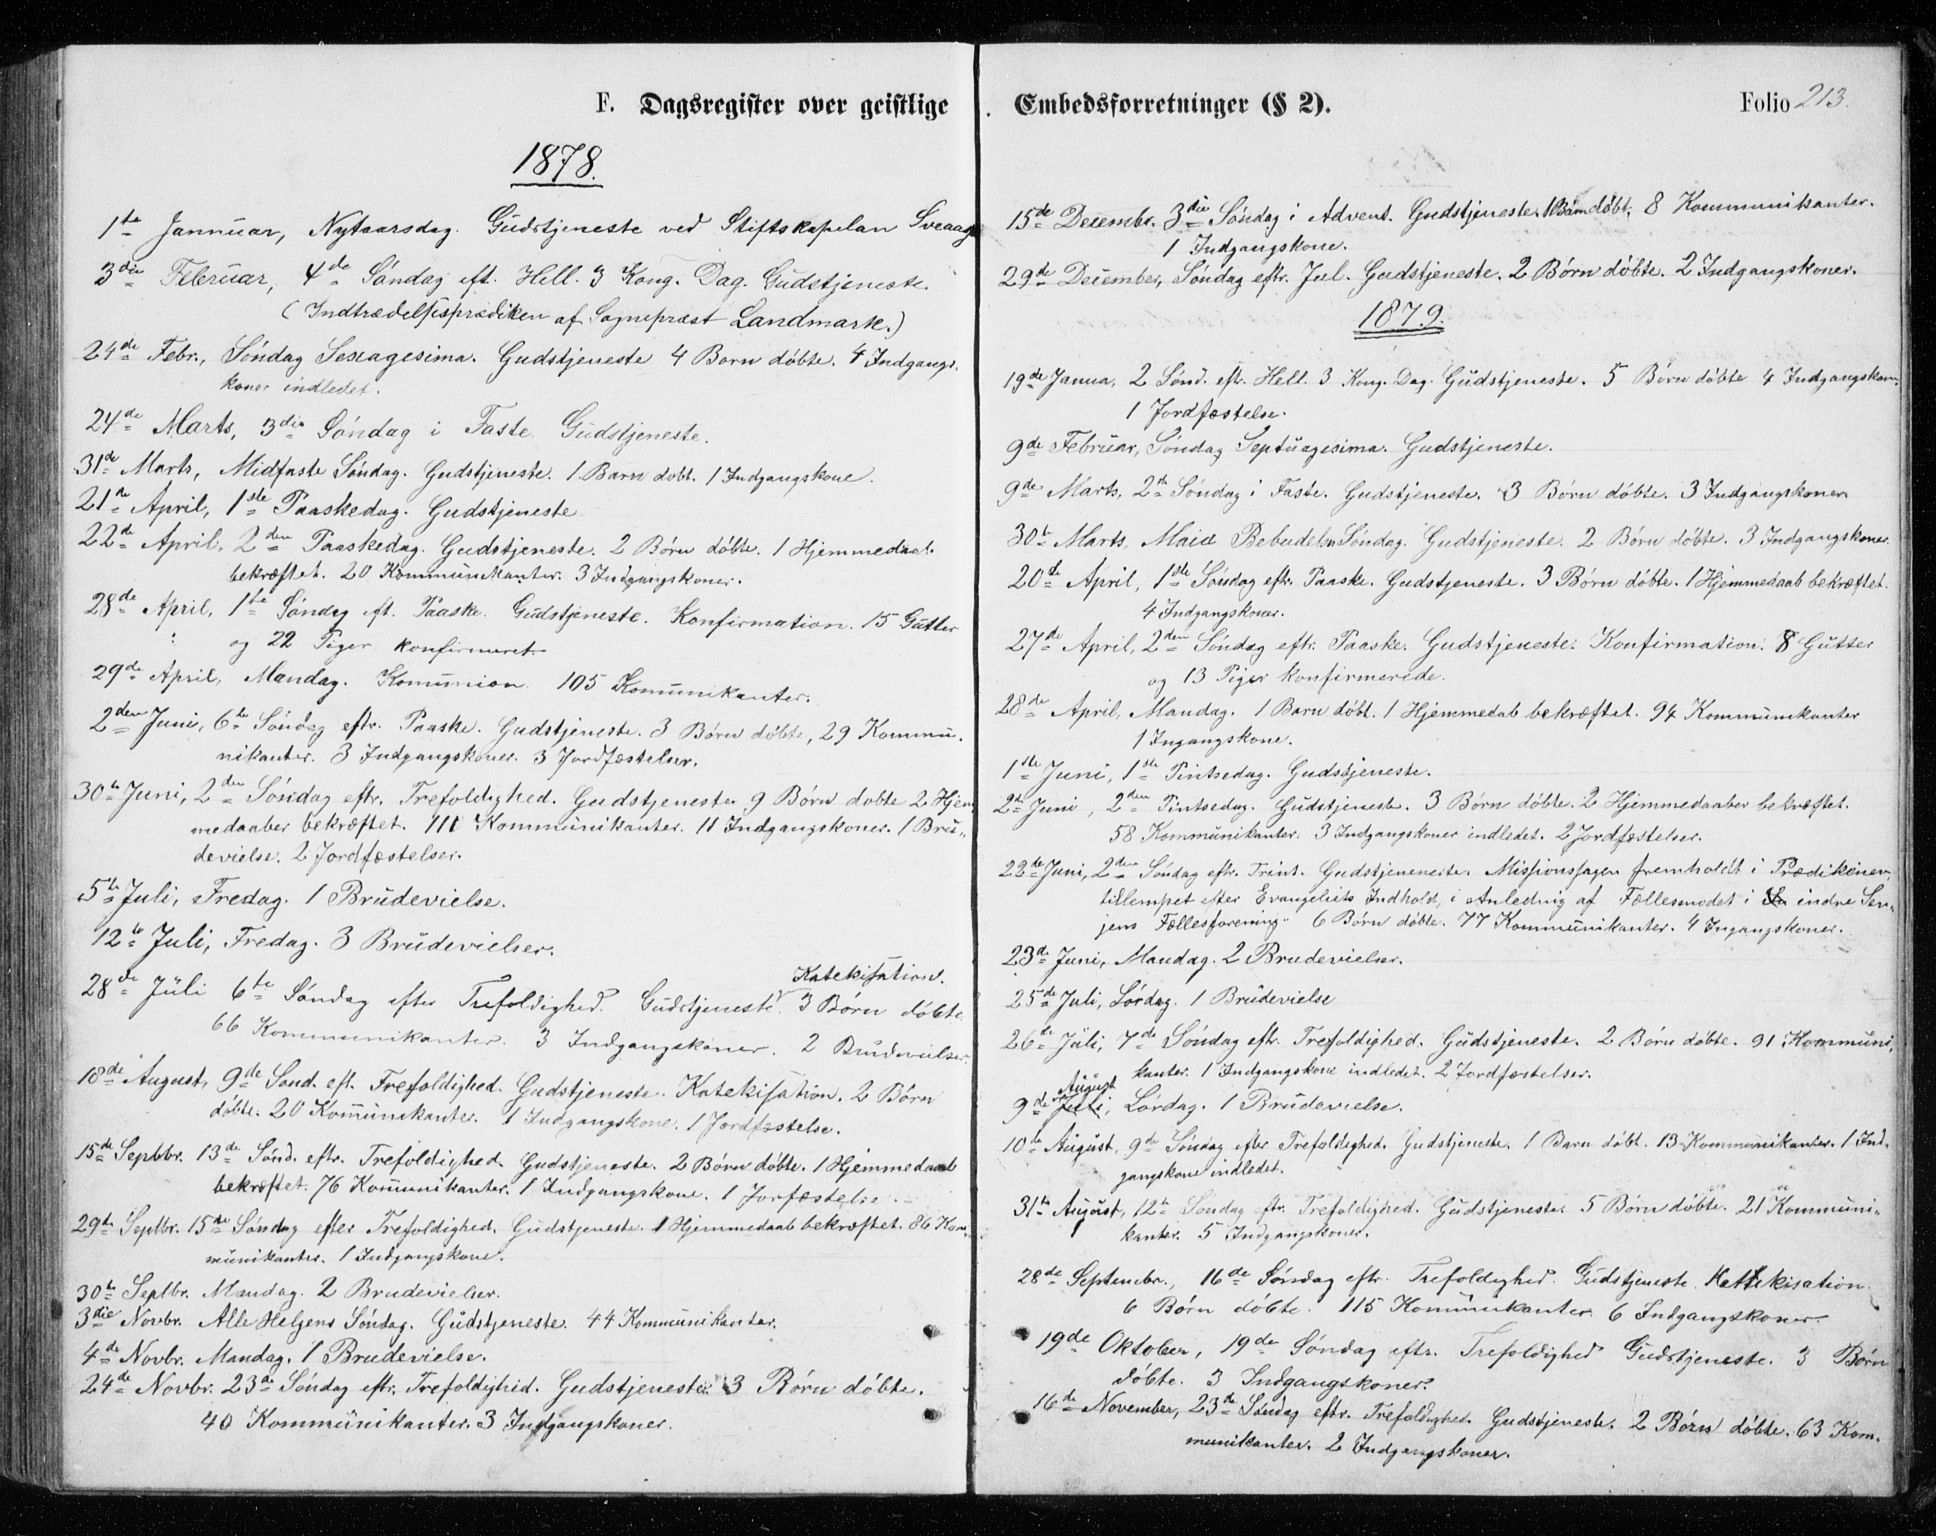 F. Dagsregister over geistlige
1878.
1te Jannuar, Nytaarsdag. Gudstjeneste ved Stiftskapelan Sveaas
3die Februar, 4de Søndag eft. Hell. 3 Kong. Dag. Gudstjeneste.
(Indtrædelsesprædiken af Sognepræst Landmark.)
24de Febr., Søndag Sexagesima. Gudstjeneste 4 Børn døbte. 4 Indgangs-
koner indledet.
24de Marts, 3die Søndag i Faste. Gudstjeneste.
31de Marts, Midfaste Søndag. Gudstjeneste. 1 Barn døbt. 1 Indgangskone.
21de April, 1ste Paaskedag. Gudstjeneste
22de April, 2den Paaskedag. Gudstjeneste. 2 Børn døbte. 1 Hjemmedaab
bekræftet. 20 Kommunikanter. 3 Indgangskoner.
28de April, 1te Søndag eft. Paaske. Gudstjeneste. Konfirmation. 15 Gutter
og 22 Piger konfirmeret.
29de April, Mandag. Komunion. 105 Komunikanter.
2den Juni, 6te Søndag eftr. Paaske. Gudstjeneste. 3 Børn døbte, 29 Kommu-
nikanter. 3 Indgangskoner. 3 Jordfæstelser.
30te Juni, 2den Søndag eftr. Trefoldighed. Gudstjeneste 9 Børn døbte 2 Hjem-
medaaber bekræftet. 111 Kommunikanter. 11 Indgangskoner. 1 Bru-
devielse. 2 Jordfæstelser.
5te Juli, Fredag. 1 Brudevielse.
12te Juli, Fredag. 3 Brudevielser.
Katekisation.
28de Juli 6te Søndag efter Trefoldighed. Gudstjeneste. 3 Børn døbte
66 Kommunikanter. 3 Indgangskoner. 2 Brudevielser.
18de August, 9de Sønd. eft. Trefoldighed. Gudstjeneste. Katekisation. 2 Børn
døbte. 20 Komunikanter. 1 Indgangskone. 1 Jordfæstelse.
15de Septbr. 13de Sønd. eftr. Trefoldighed. Gudstjeneste. 2 Børn døbte. 1 Hjemmedaab
bekræftet. 76 Komunikanter. 1 Indgangskone. 1 Jorfæstelse.
29de Septbr. 15de Søndag efter Trefoldighed. Gudstjeneste. 1 Hjemmedaab bekræftet. 86 Kom-
munikanter. 1 Indgangskone.
30te Septbr. Mandag. 2 Brudevielser.
3die Novbr. Alle Helgens Søndag. Gudstjeneste. 44 Kommunikanter.
4de Novbr. Mandag. 1 Brudevielse.
24de Novbr. 23de Søndag eftr. Trefoldighed. Gudstjeneste. 3 Børn døbte.
40 Kommunikanter. 3 Indgangskoner.
Embedsforretninger (§ 2).
Folio 213.
15de Decembr. 3die Søndag i Advent. Gudstjeneste. 1 Barn døbt. 8 Kommunikanter.
1 Indgangskone.
29de December, Søndag eftr. Jul. Gudstjeneste. 2 Børn døbte. 2 Indgangskoner.
1879.
19de Janua, 2 Sønd. eftr. Hell. 3 Kong. Dag. Gudstjeneste. 5 Børn døbte 4 Indgangskon.
1 Jordfæstelse.
9de Februar, Søndag Septuagesima. Gudstjeneste.
9de Marts, 2de Søndag i Faste. Gudstjeneste. 3 Børn døbte. 3 Indgangskoner
30te Marts, Maria Bebudelses Søndag. Gudstjeneste. 2 Børn døbte. 3 Indgangskoner.
20de April, 1ste Søndag eftr. Paaske. Gudstjeneste. 3 Børn døbte. 1 Hjemmedaab bekræftet.
4 Indgangskoner.
27de April, 2den Søndag eftr. Paaske. Gudstjeneste. Konfirmation. 8 Gutter
og 13 Piger konfirmerede.
28de April, Mandag. 1 Barn døbt. 1 Hjemmedab bekræftet. 94 Kommunikanter
1 Ingangskone.
1ste Juni, 1ste Pintsedag. Gudstjeneste.
2te Juni, 2den Pintsedag. Gudstjeneste. 3 Børn døbte. 2 Hjemmedaaber bekræftet.
58 Kommunikanter. 3 Indgangskoner indledet. 2 Jordfæstelser.
22de Juni, 2den Søndag eftr. Trint. Gudstjeneneste. Missionssagen fremholdt i Prædikenen,
tillempet efter Evangeliets Indhold, i Anledning af Fællesmødet i indre Sen-
jens Fællesforening. 6 Børn døbte. 77 Kommunikanter. 4 Ingangskoner.
23de Juni, Mandag. 2 Brudevielser.
25de Juli, Lørdag. 1 Brudevielse
26de Juli, 7de Søndag eftr. Trefoldighed. Gudstjeneste. 2 Børn døbte. 91 Kommuni-
kanter. 1 Indgangskone indledet. 2 Jordfæstelser.
August
9de Juli, Lørdag. 1 Brudevielse.
10de August, 9de Søndag efter Trefoldighed. Gudstjeneste. 1 Barn døbt. 13 Kommunikanter. 1 Ind-
gangskone indledet.
31te August, 12te Søndag eftr. Trefoldighed. Gudstjeneste. 5 Børn døbte. 21 Kommuni-
kanter. 5 Indgangskoner.
28de Septembr., 16de Søndag eftr. Trefoldighed. Gudstjeneste. Kattekisation.
6 Børn døbte. 115 Komunikanter. 6 Indgangskoner.
19de Oktober, 19de Søndag eftr. Trefoldighed Gudstjeneste. 3 Børn
døbte. 3 Indgangskoner.
16de November, 23de Søndag eftr. Trefoldighed. Gudstjeneste. 2 Børn døbte. 63 Kom-
munikanter. 2 Indgangskoner.